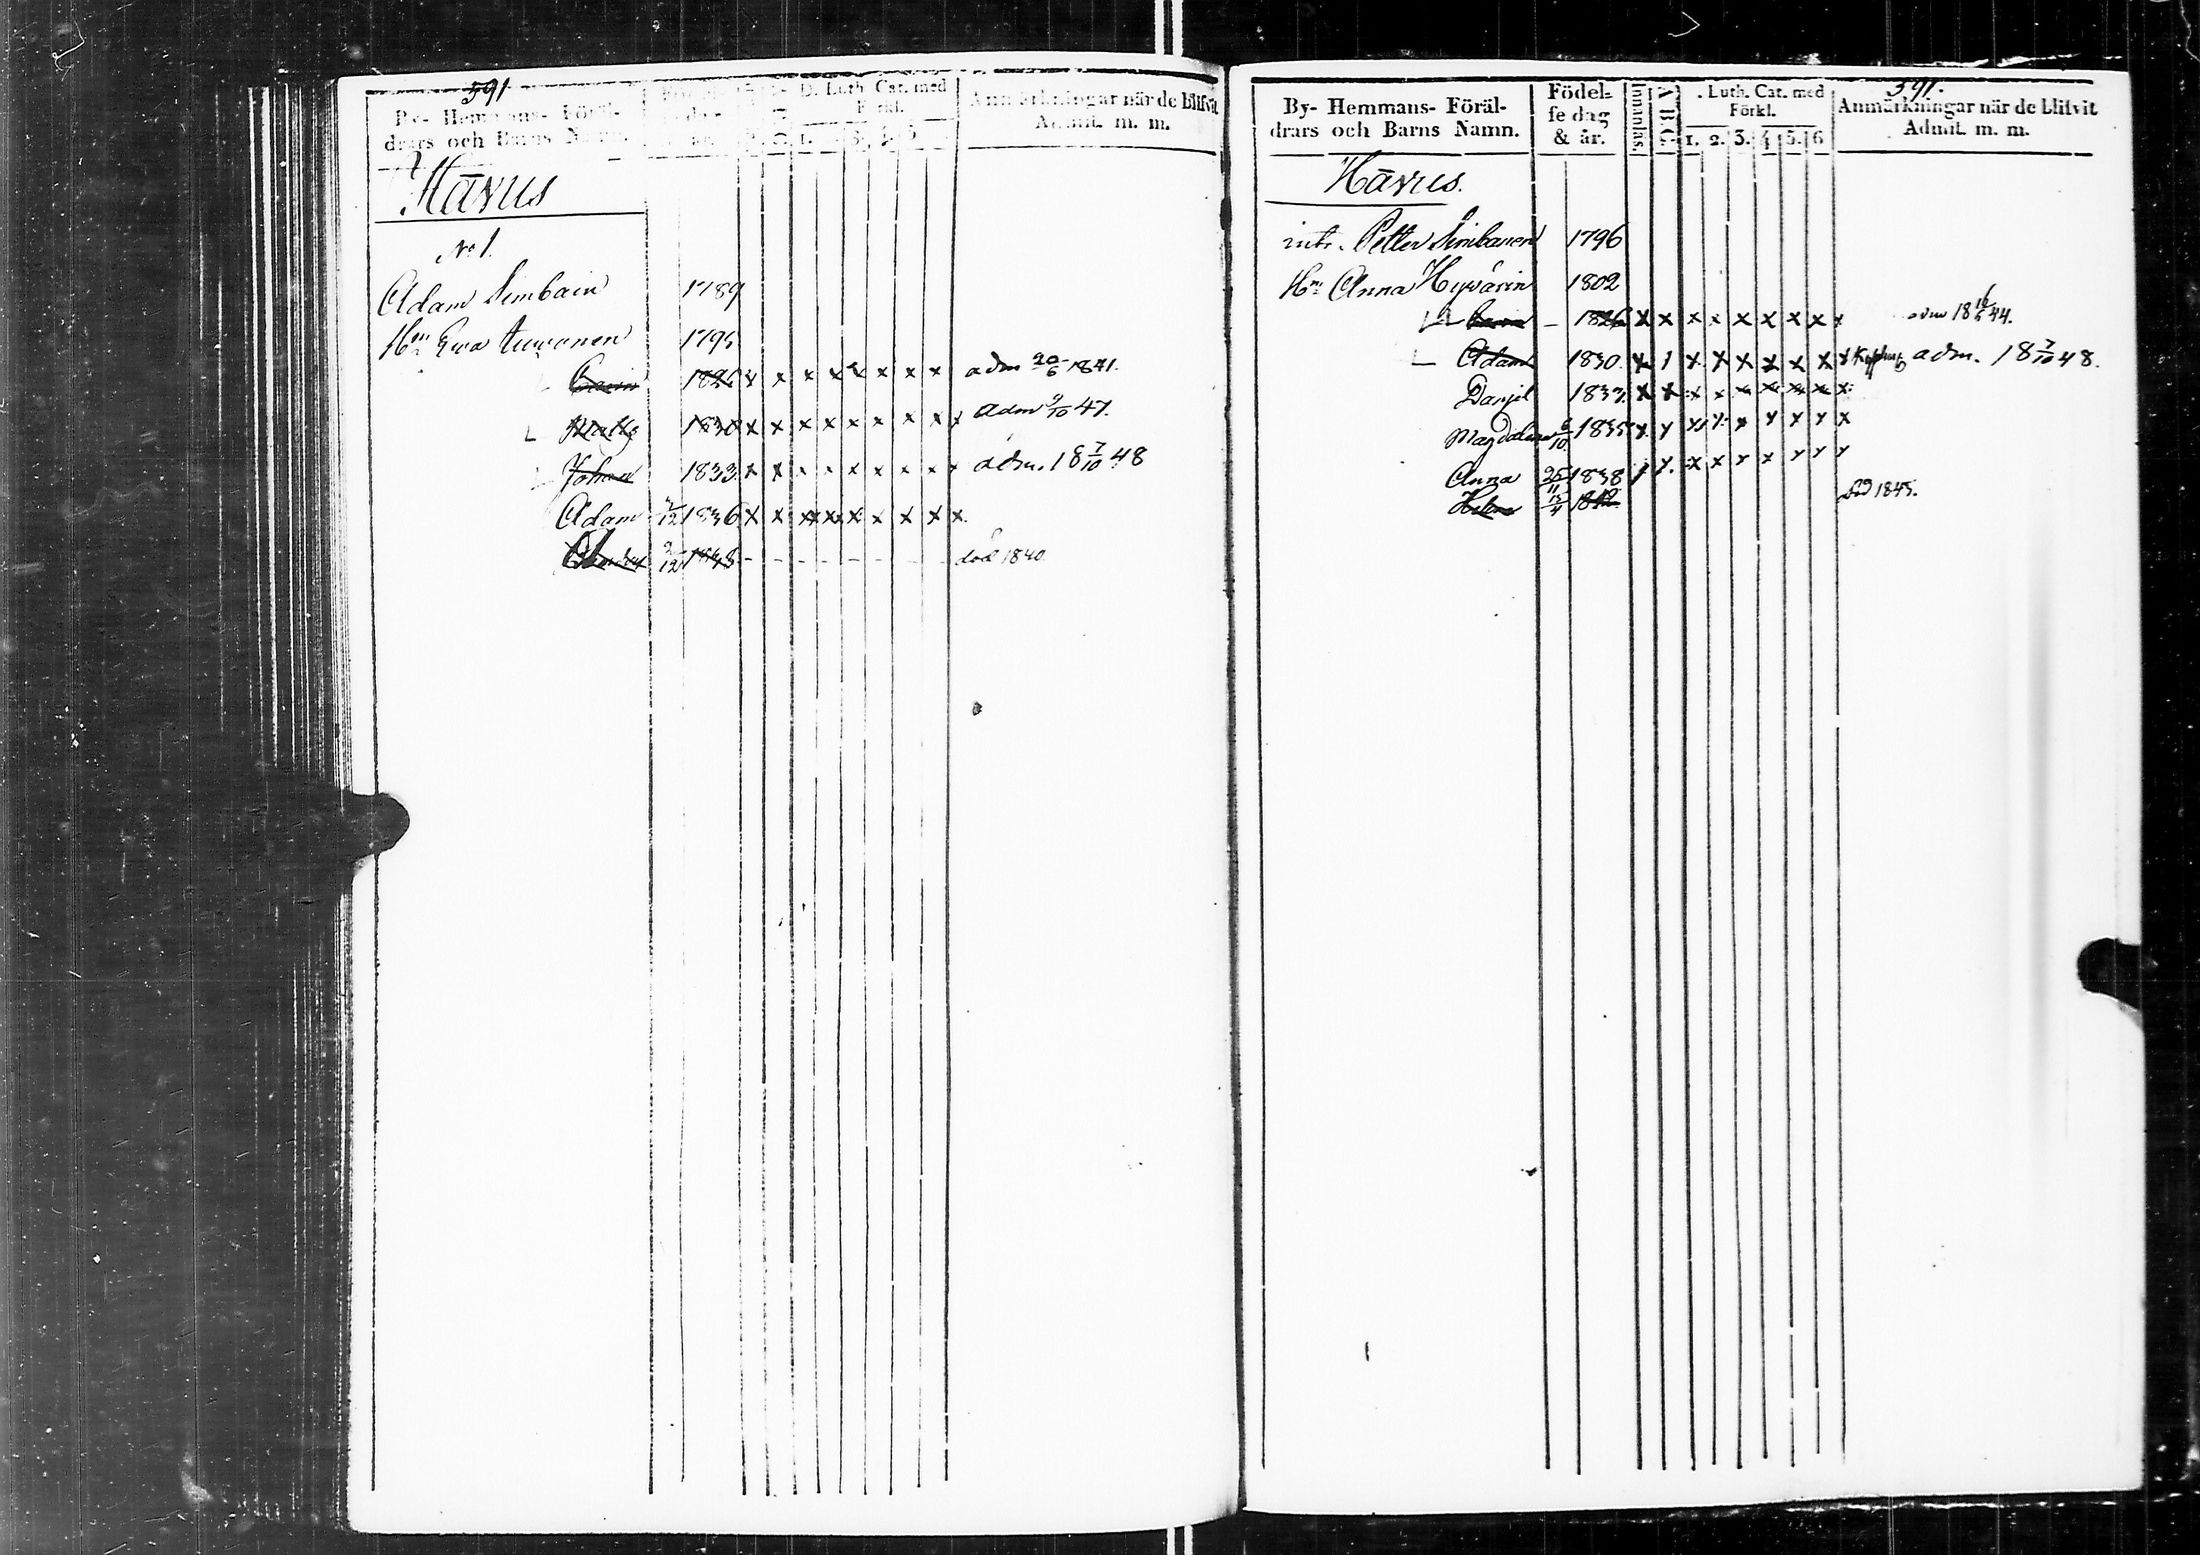 591
By- Hemmans- Föräl-
drars och Barns Namn.
D. Luth. Cat. med
Förkl.
Anmärkningar när de blifvit
Admit. m. m.
Hävus
No 1.
Adam Simbain 1789
Hru Ewa 1795
Carin 1826 x x x x x x x x adm 20/6 1841.
1830 x x x x x x x x x adm 9/10 47.
Johan 1833 x x x x x x x x x adm. 18 7/10 48
Adam 1836 x x x x x x x x x
död 1840
591.
By- Hemmans- Föräl-
drars och Barns Namn.
Födel-
se dag
& år.
Innanläs.
A B C
. Luth. Cat. med
Förkl.
1. 2. 3. 4 5. 6
Anmärkningar när de blifvit
Admit. m. m.
Hävus.
Petter Simbanen 1796
Hru Anna Hyvärin 1802
1826 x x x x x x x x x adm 18 16/6 44.
Adam 1830. x 1 x x x x x x x adm. 18 7/10 48.
Danjel 1833 x x x x x x x x x
Magdalena 6/10 1835 x x x x x x x x x
Anna 25/11 1838 x x x x x x x x
Helena 15/4 1842 död 1845.